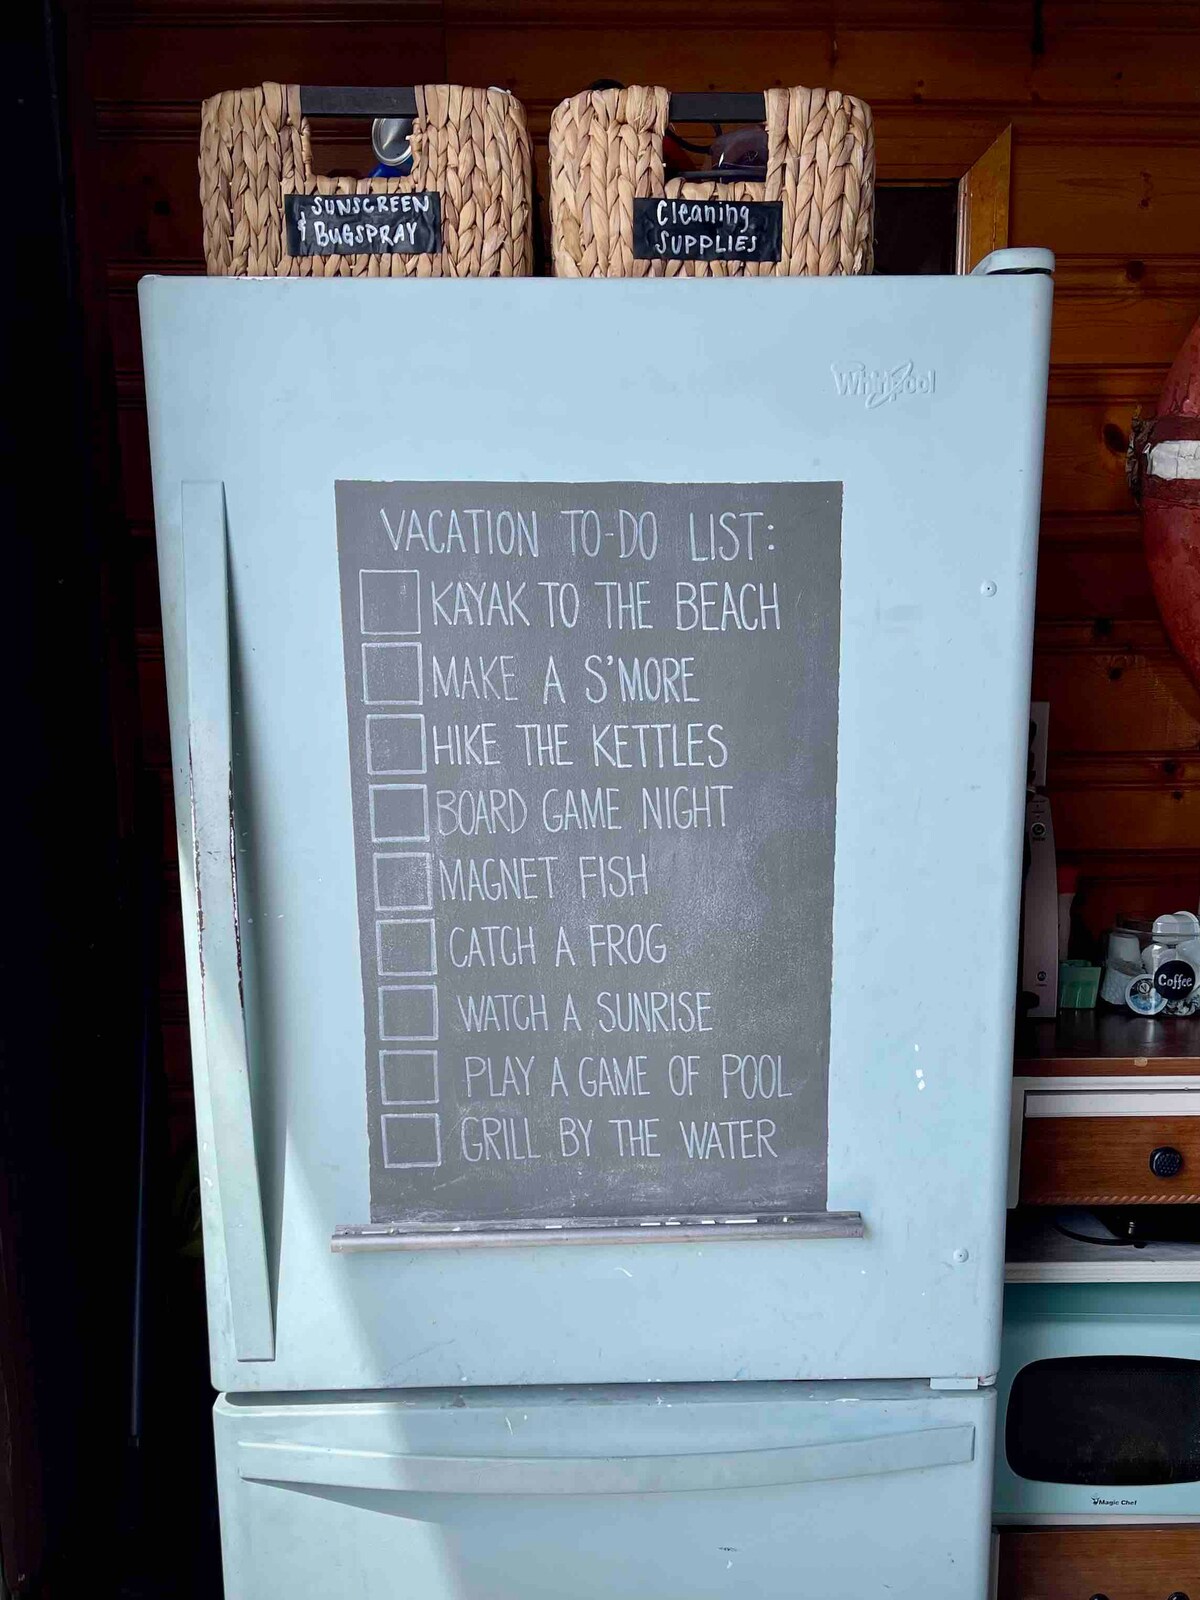 SUNSCREEN
& BUGSPRAY
Cleaning
SUPPLIES
Whirlpool
VACATION TO-DO LIST:
KAYAK TO THE BEACH
MAKE A S'MORE
HIKE THE KETTLES
BOARD GAME NIGHT
MAGNET FISH
CATCH A FROG
WATCH A SUNRISE
PLAY A GAME OF POOL
GRILL BY THE WATER
Coffee
Magic Chef